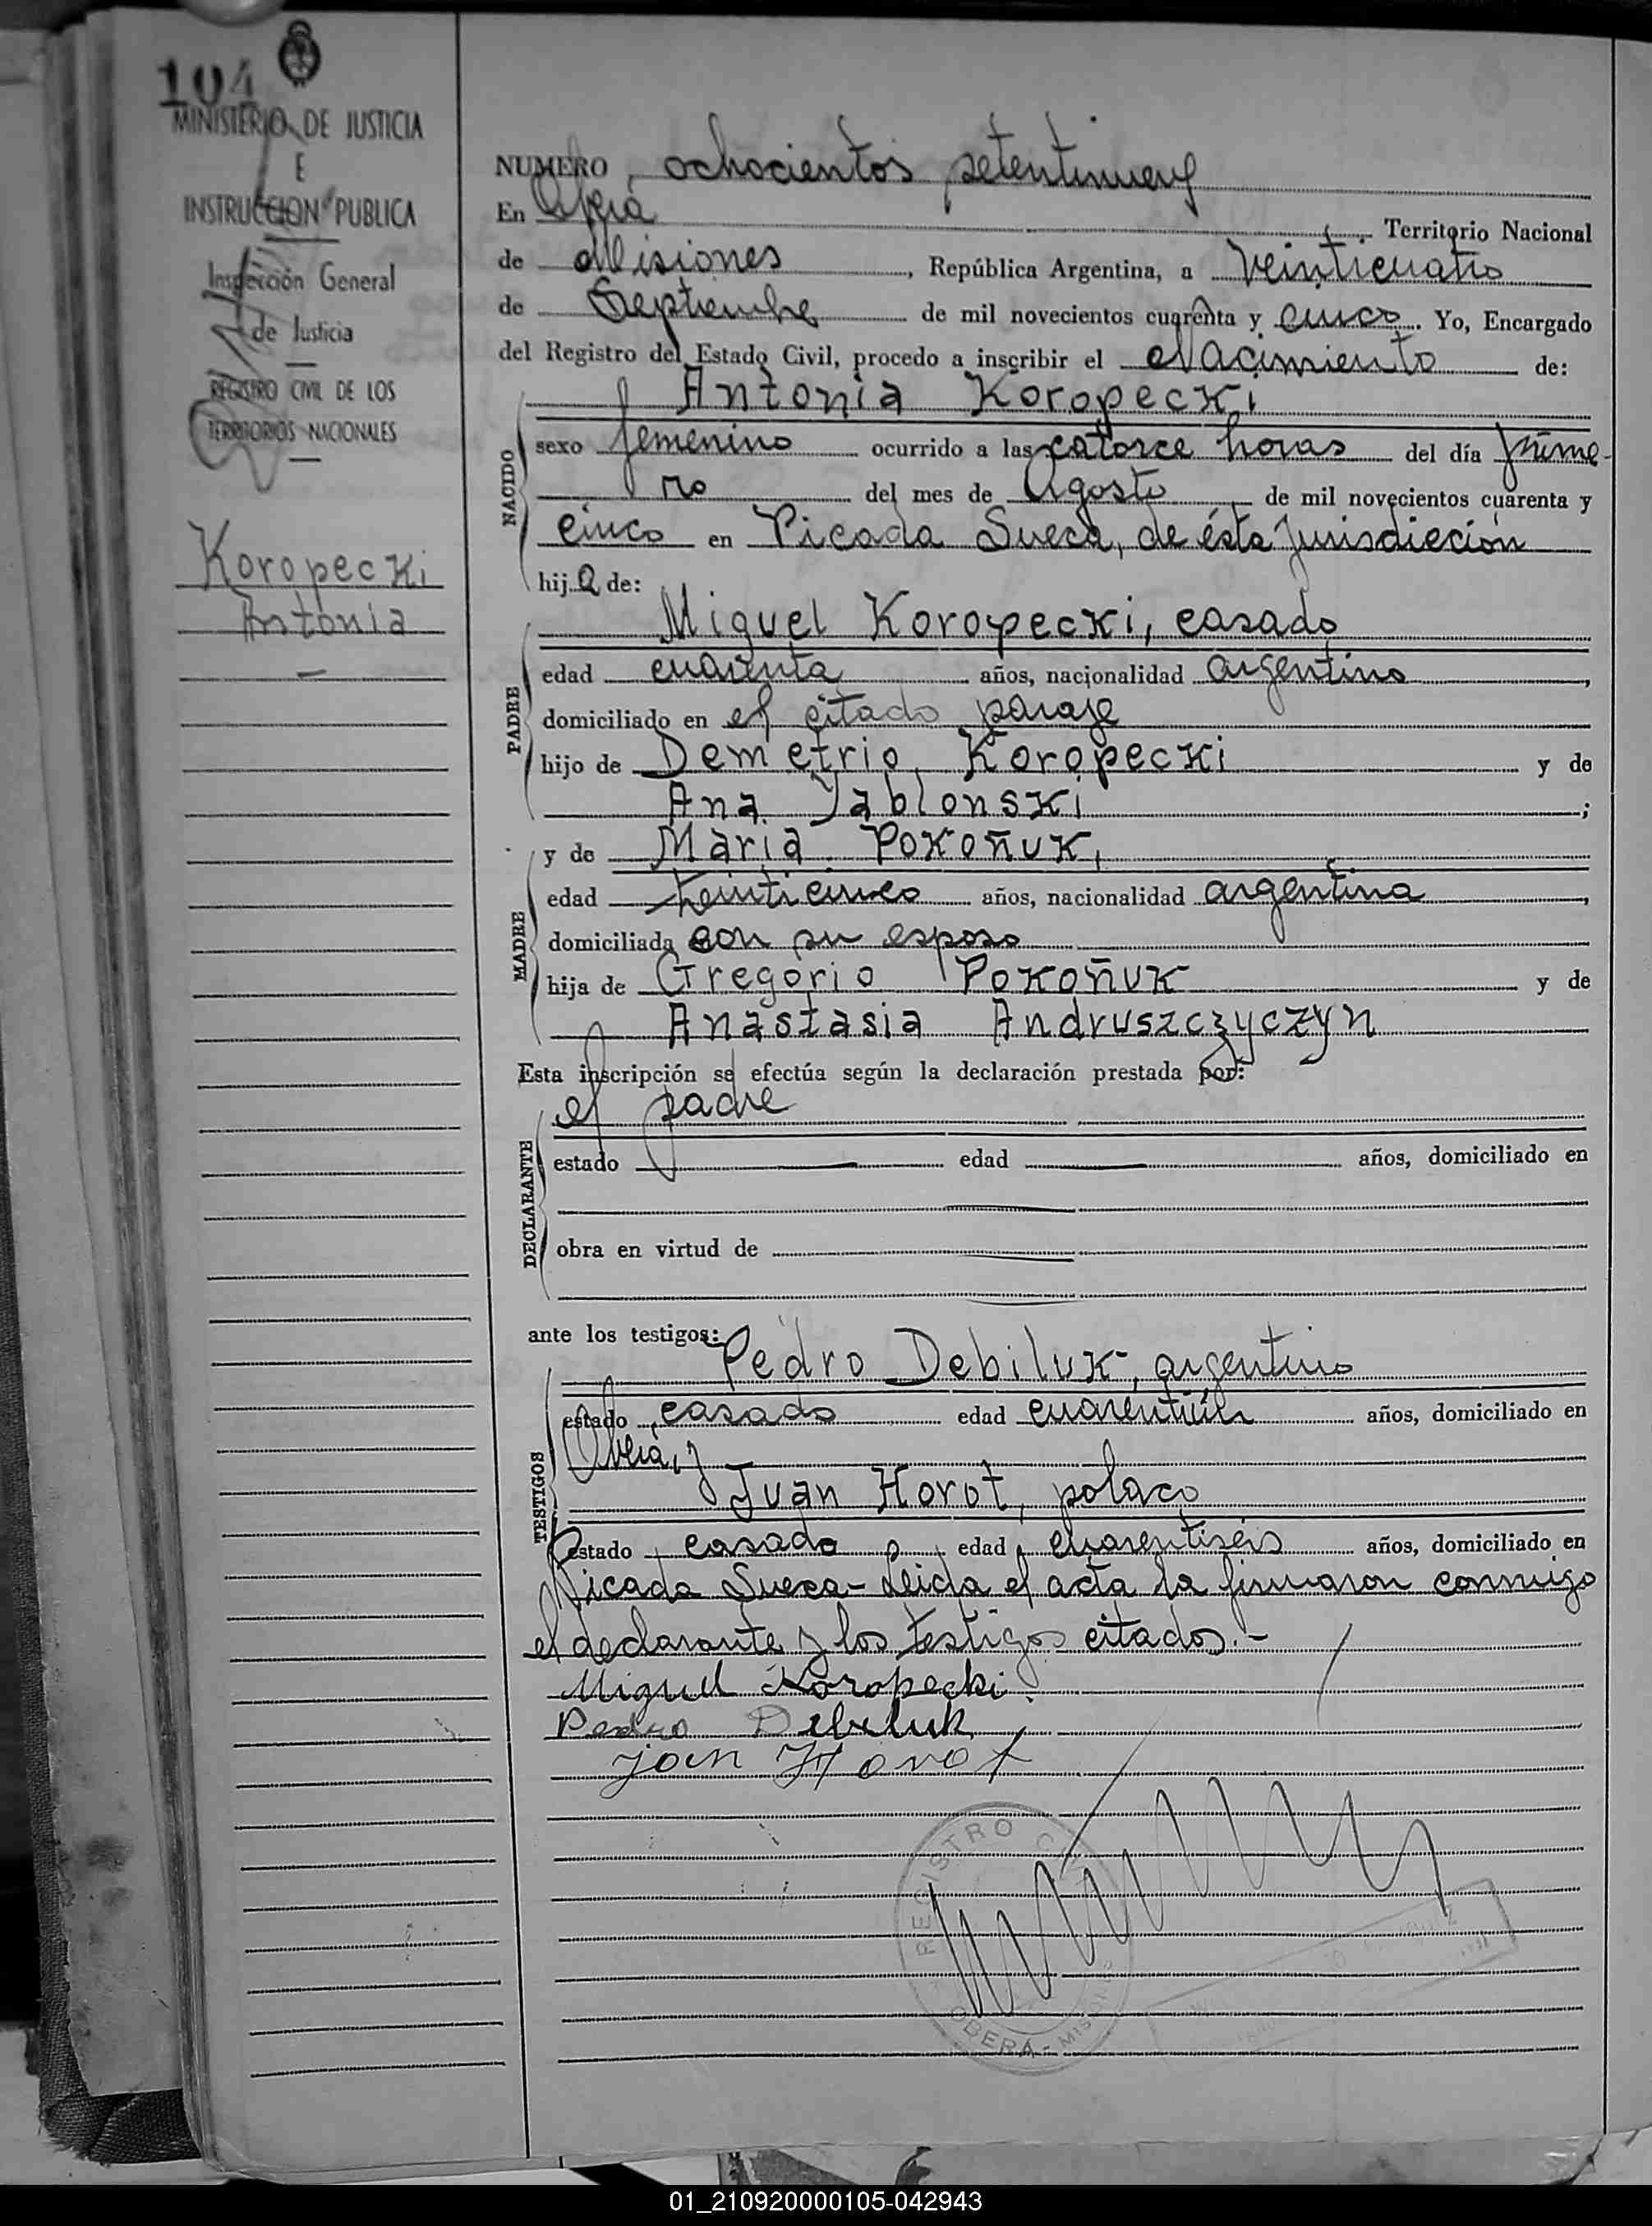 104
MINISTERIO DE JUSTICIA
E
INSTRUCCION PUBLICA
Inspección General
de Justicia
REGISTRO CIVIL DE LOS
TERRITORIOS NACIONALES
Koropecki
Antonia
NUMERO ochocientos setentinueve
En Oberá Territorio Nacional
de Misiones, República Argentina, a veinticuatro
de Septiembre de mil novecientos cuarenta y cinco. Yo, Encargado
del Registro del Estado Civil, procedo a inscribir el Nacimiento de:
Antonia Koropecki
NACIDO
sexo femenino ocurrido a las catorce horas del día prime-
ro del mes de Agosto de mil novecientos cuarenta y
cinco en Picada Sueca, de ésta Jurisdicción
hija de:
Miguel Koropecki, casado
PADRE
edad cuarenta años, nacionalidad argentino,
domiciliado en el citado paraje
hijo de Demetrio Koropecki y de
Ana Jablonski;
y de Maria Pokoñuk,
MADRE
edad veinticinco años, nacionalidad argentina,
domiciliada con su esposo
hija de Gregorio Pokoñuk y de
Anastasia Andruszczyczyn
Esta inscripción se efectúa según la declaración prestada por:
el padre
DECLARANTE
estado edad años, domiciliado en
obra en virtud de
ante los testigos:
Pedro Debiluk, argentino
TESTIGOS
estado casado edad años, domiciliado en
Oberá, y
Juan Horot, polaco
estado casado edad cuarentiséis años, domiciliado en
Picada Sueca - Leida el acta la firmaron conmigo
el declarante y los testigos citados.-
Miguel Koropecki
Pedro Debeluk
joan Horot
REGISTRO CIVIL
OBERÁ - MISIONES
01_210920000105-042943